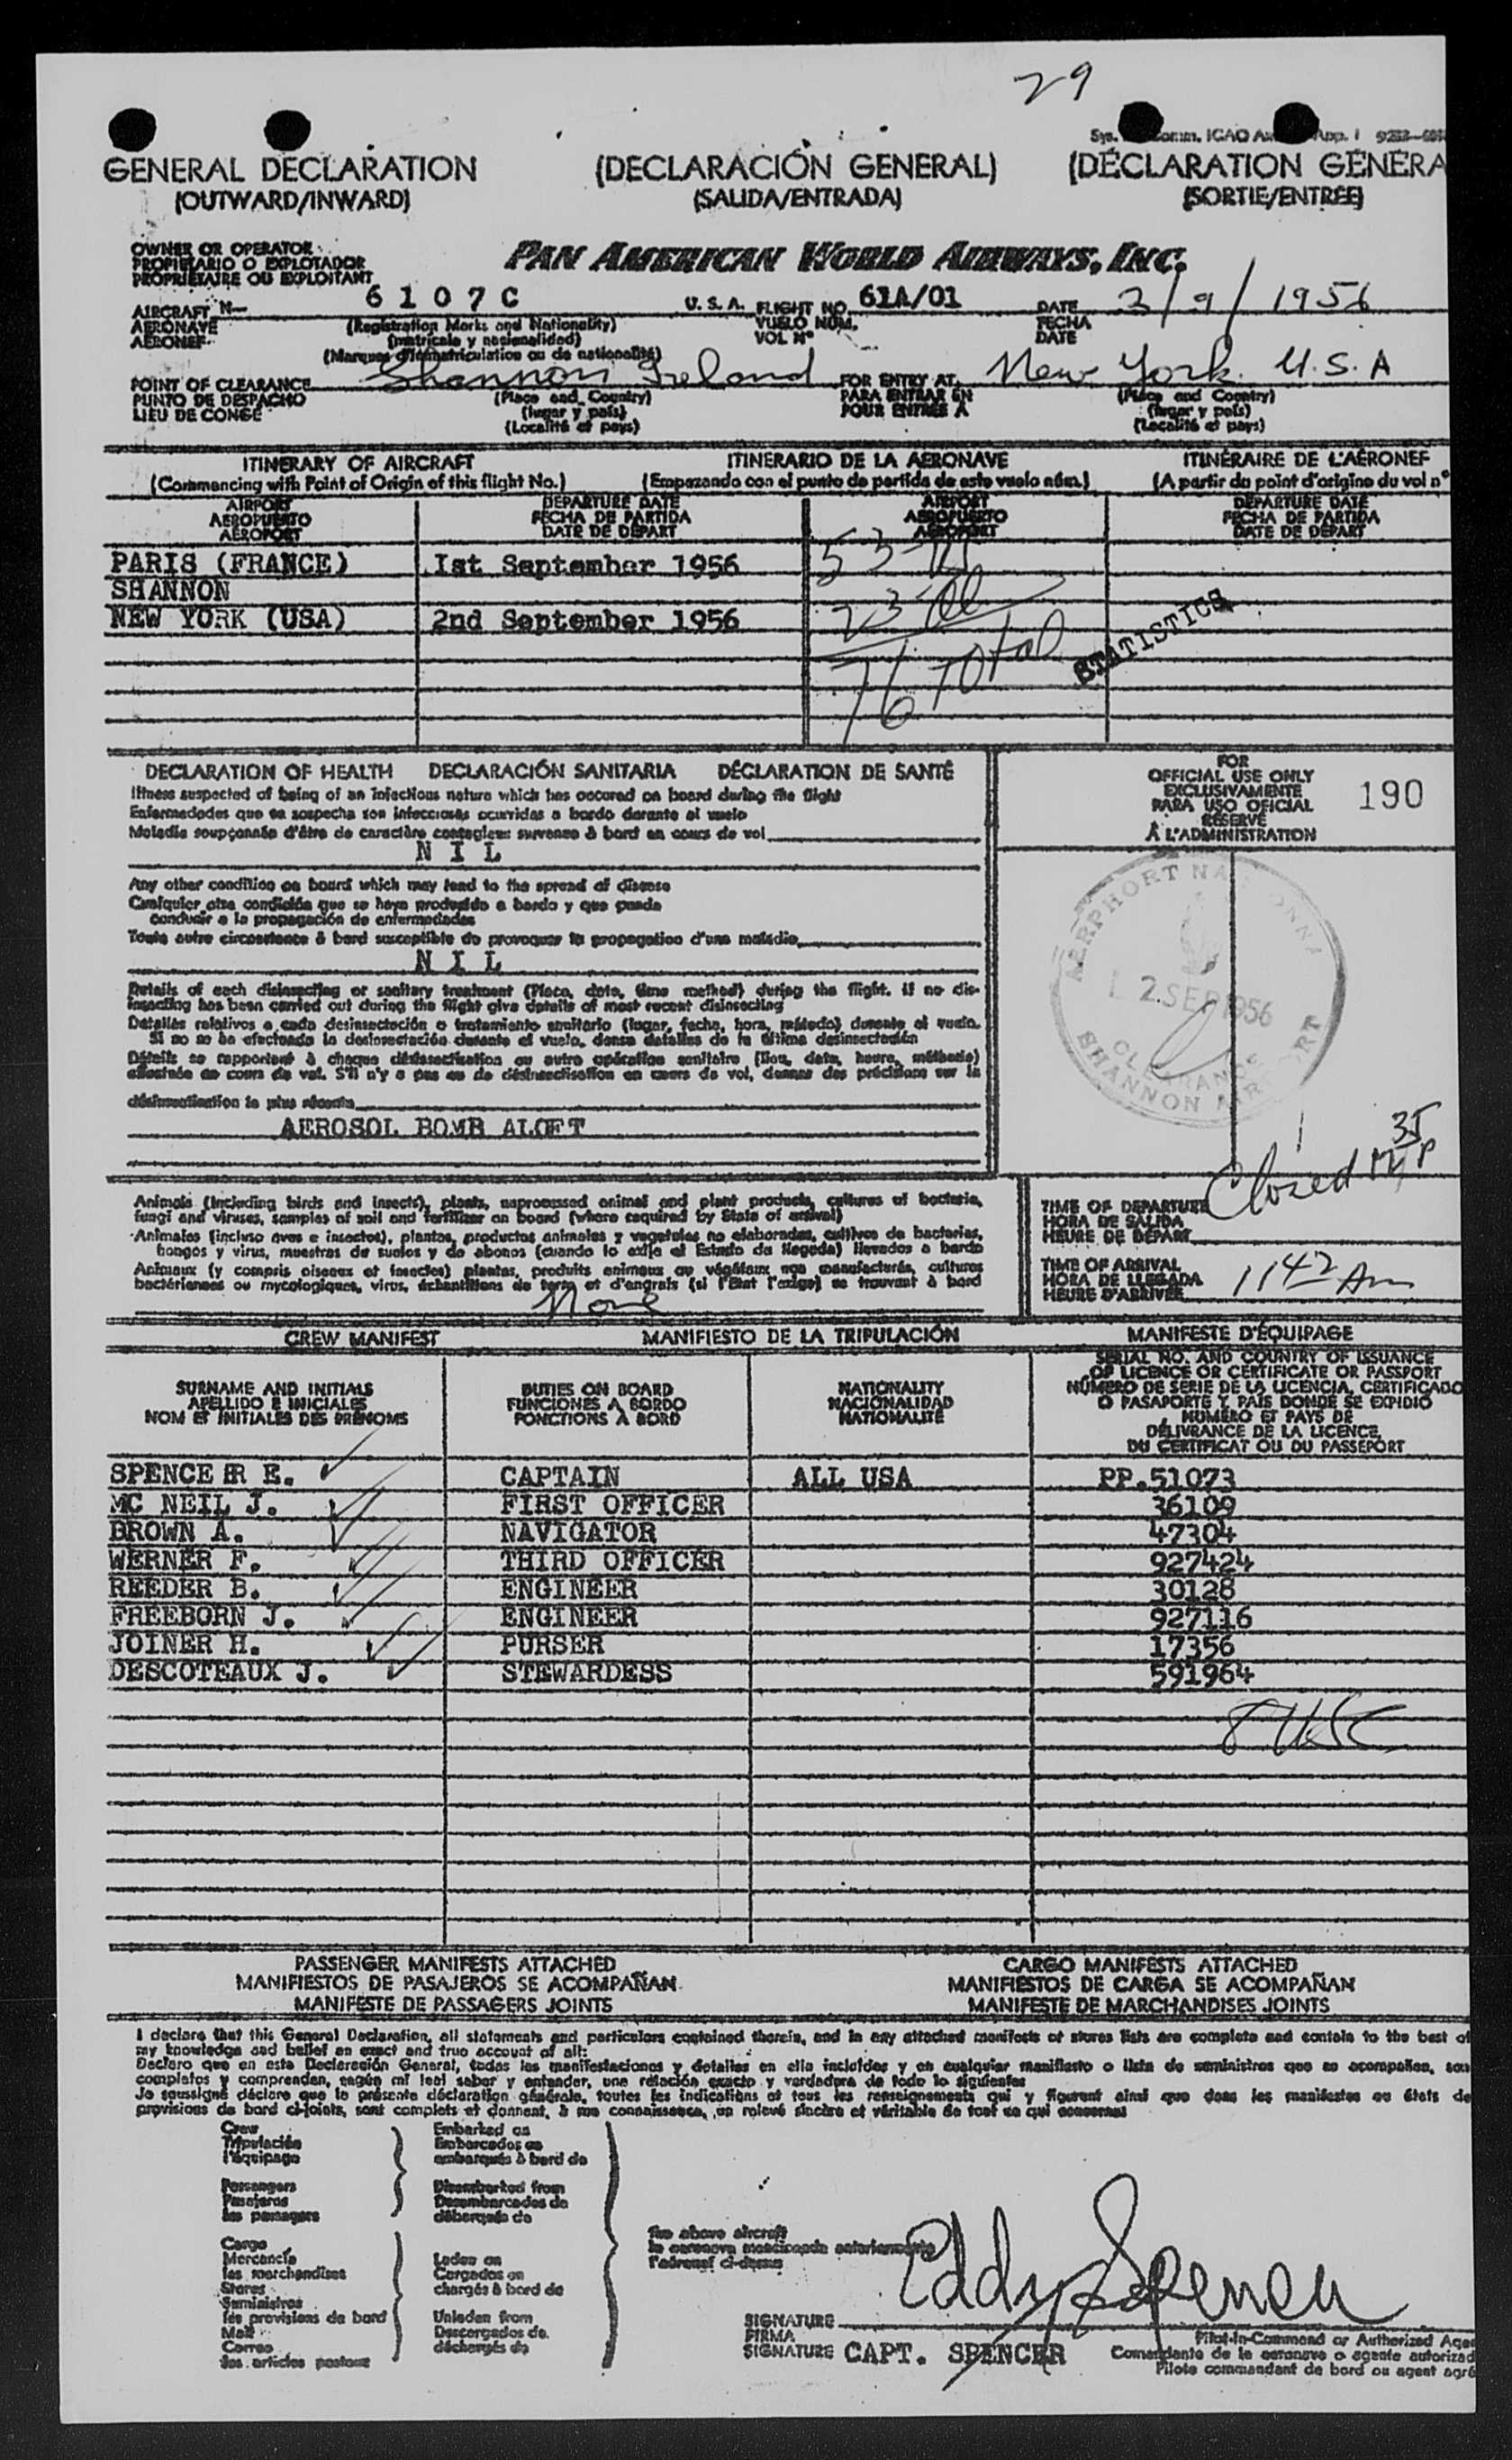 29
GENERAL DECLARATION (DECLARACIÓN GENERAL) (DÉCLARATION GÉNÉRA
(OUTWARD/INWARD) (SALIDA/ENTRADA) (SORTIE/ENTRÉE)
OWNER OR OPERATOR
PROPIETARIO O EXPLOTADOR
PROPRIÉTAIRE OU EXPLOITANT
PAN AMERICAN WORLD AIRWAYS, INC.
AIRCRAFT N- 6107C U.S.A. FLIGHT NO. 61A/01 DATE 2/9/1956
AERONAVE (Registration Marks and Nationality) VUELO NÚM. FECHA
AÉRONEF (matrícula y nacionalidad) VOL Nº DATE
(Marques d'immatriculation ou de nationalité)
POINT OF CLEARANCE Shannon Ireland FOR ENTRY AT New York. U.S.A
PUNTO DE DESPACHO (Place and Country) PARA ENTRAR EN (Place and Country)
LIEU DE CONGÉ (lugar y país) POUR ENTRÉE À (lugar y país)
(Localité et pays) (Localité et pays)
ITINERARY OF AIRCRAFT ITINERARIO DE LA AERONAVE ITINÉRAIRE DE L'AÉRONEF
(Commencing with Point of Origin of this flight No.) (Empezando con el punto de partida de este vuelo núm.) (A partir du point d'origine du vol nº
AIRPORT DEPARTURE DATE AIRPORT DEPARTURE DATE
AEROPUERTO FECHA DE PARTIDA AEROPUERTO FECHA DE PARTIDA
AÉROPORT DATE DE DÉPART AÉROPORT DATE DE DÉPART
PARIS (FRANCE) 1st September 1956 53
SHANNON 23
NEW YORK (USA) 2nd September 1956
76 Total
STATISTICS
DECLARATION OF HEALTH DECLARACIÓN SANITARIA DÉCLARATION DE SANTÉ
Illness suspected of being of an infectious nature which has occured on board during the flight
Enfermedades que se sospecha son infecciosas ocurridas a bordo durante el vuelo
Maladie soupçonnée d'être de caractère contagieux survenue à bord en cours de vol
NIL
Any other condition on board which may lead to the spread of disease
Cualquier otra condición que se haya producido a bordo y que pueda
conducir a la propagación de enfermedades
Toute autre circonstance à bord susceptible de provoquer la propagation d'une maladie
NIL
Details of each disinsecting or sanitary treatment (Place, date, time method) during the flight. If no dis-
insecting has been carried out during the flight give details of most recent disinsecting
Detalles relativos a cada desinsectación o tratamiento sanitario (lugar, fecha, hora, método) durante el vuelo.
Si no se ha efectuado la desinsectación durante el vuelo, dense detalles de la última desinsectación
Détails se rapportant à chaque désinsectisation ou autre opération sanitaire (lieu, date, heure, méthode)
effectuée en cours de vol. S'il n'y a pas eu de désinsectisation en cours de vol, donner des précisions sur la
désinsectisation la plus récente
AEROSOL BOMB ALOFT
FOR
OFFICIAL USE ONLY
EXCLUSIVAMENTE
PARA USO OFICIAL
RÉSERVÉ
À L'ADMINISTRATION
190
2 SEP 1956
CLEARANCE
SHANNON AIRPORT
Animals (including birds and insects), plants, unprocessed animal and plant products, cultures of bacteria,
fungi and viruses, samples of soil and fertilizer on board (where required by State of arrival)
Animales (incluso aves e insectos), plantas, productos animales y vegetales no elaborados, cultivos de bacterias,
hongos y virus, muestras de suelos y de abonos (cuando lo exija el Estado de llegada) llevados a bordo
Animaux (y compris oiseaux et insectes) plantes, produits animaux ou végétaux non manufacturés, cultures
bactériennes ou mycologiques, virus, échantillons de terre et d'engrais (si l'Etat l'exige) se trouvant à bord
None
TIME OF DEPARTURE Closed
HORA DE SALIDA
HEURE DE DÉPART
TIME OF ARRIVAL
HORA DE LLEGADA 1142 Am
HEURE D'ARRIVÉE
CREW MANIFEST MANIFIESTO DE LA TRIPULACIÓN MANIFESTE D'ÉQUIPAGE
SURNAME AND INITIALS DUTIES ON BOARD NATIONALITY SERIAL NO. AND COUNTRY OF ISSUANCE
APELLIDO E INICIALES FUNCIONES A BORDO NACIONALIDAD OF LICENCE OR CERTIFICATE OR PASSPORT
NOM ET INITIALES DES PRÉNOMS FONCTIONS À BORD NATIONALITÉ NÚMERO DE SERIE DE LA LICENCIA, CERTIFICADO
O PASAPORTE Y PAÍS DONDE SE EXPIDIÓ
NUMÉRO ET PAYS DE
DÉLIVRANCE DE LA LICENCE,
DU CERTIFICAT OU DU PASSEPORT
SPENCER E. CAPTAIN ALL USA PP.51073
MC NEIL J. FIRST OFFICER 36109
BROWN A. NAVIGATOR 47304
WERNER F. THIRD OFFICER 927424
REEDER B. ENGINEER 30128
FREEBORN J. ENGINEER 927116
JOINER H. PURSER 17356
DESCOTEAUX J. STEWARDESS 591964
8 USC
PASSENGER MANIFESTS ATTACHED CARGO MANIFESTS ATTACHED
MANIFIESTOS DE PASAJEROS SE ACOMPAÑAN MANIFIESTOS DE CARGA SE ACOMPAÑAN
MANIFESTE DE PASSAGERS JOINTS MANIFESTE DE MARCHANDISES JOINTS
I declare that this General Declaration, all statements and particulars contained therein, and in any attached manifests or stores lists are complete and contain to the best of
my knowledge and belief an exact and true account of all:
Declaro que en esta Declaración General, todas las manifestaciones y detalles en ella incluídos y en cualquier manifiesto o lista de suministros que se acompañen, son
completos y comprenden, según mi leal saber y entender, una relación exacta y verdadera de todo lo siguiente:
Je soussigné déclare que la présente déclaration générale, toutes les indications et tous les renseignements qui y figurent ainsi que dans les manifestes ou états de
provisions de bord ci-joints, sont complets et donnent, à ma connaissance, un relevé sincère et véritable de tout ce qui concerne:
Crew Embarked on
Tripulación Embarcados en
l'équipage embarqués à bord de
Passengers Disembarked from
Pasajeros Desembarcados de
les passagers débarqués de
Cargo
Mercancía Laden on
les marchandises Cargados en
Stores chargés à bord de
Suministros
les provisions de bord Unladen from
Mail Descargados de
Correo déchargés de
les articles postaux
the above aircraft
la aeronave mencionada anteriormente
l'aéronef ci-dessus
Eddy Spencer
SIGNATURE
FIRMA
SIGNATURE CAPT. SPENCER
Pilot-in-Command or Authorized Agen
Comandante de la aeronave o agente autorizad
Pilote commandant de bord ou agent agré